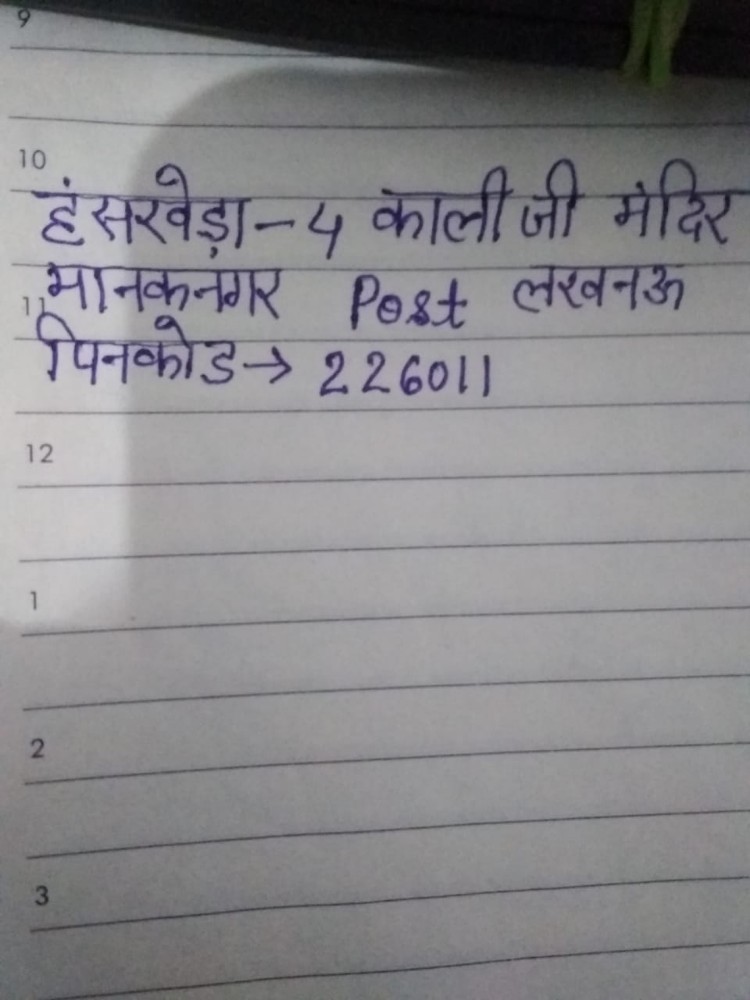 9
10
हंसखेड़ा - 4 कालीजी मंदिर
मानकनगर Post लखनऊ
11
पिनकोड → 226011
12
1
2
3